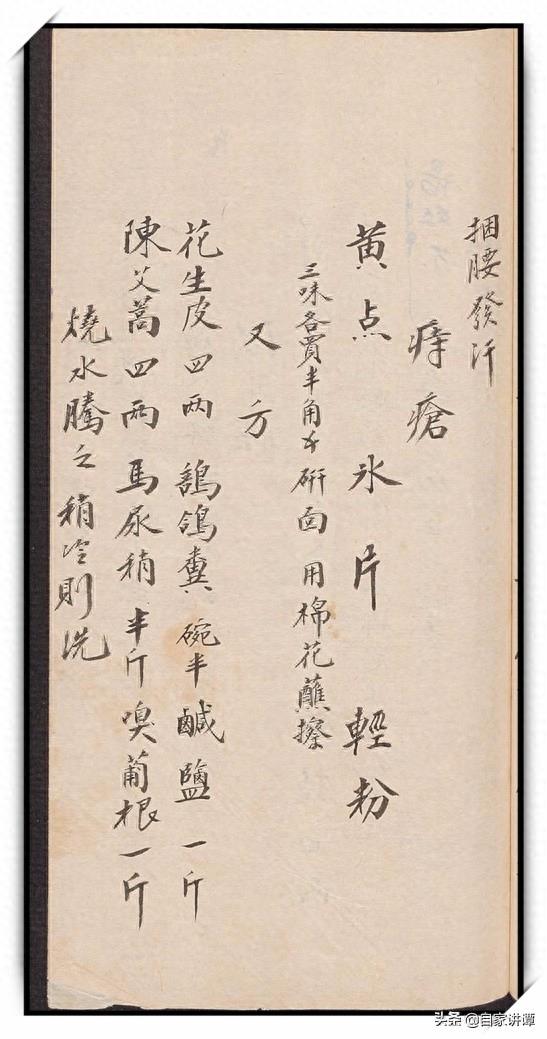 捆腰發汗
痔瘡
黄点 氷片 輕粉
三味各買半角 研面 用棉花蘸擦
又方
花生皮四两 鵓鴿糞碗半 鹹鹽一斤
陳艾蒿四两 馬尿稍半斤 嗅葡根一斤
燒水騰之稍冷則洗
头条 @自家讲谭